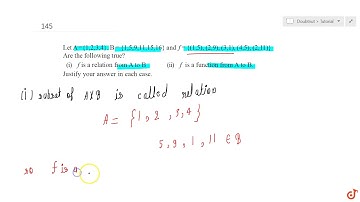 Doubtnut > Tutorial
145
Let A = {1,2,3,4}, B = {1,5,9,11,15,16} and f = {(1,5), (2,9), (3,1), (4,5), (2,11)}.
Are the following true?
(i) f is a relation from A to B (ii) f is a function from A to B.
Justify your answer in each case.
(i) subset of AXB is called relation
A = {1, 2, 3, 4}
5, 9, 1, 11 ∈ B
so f is a